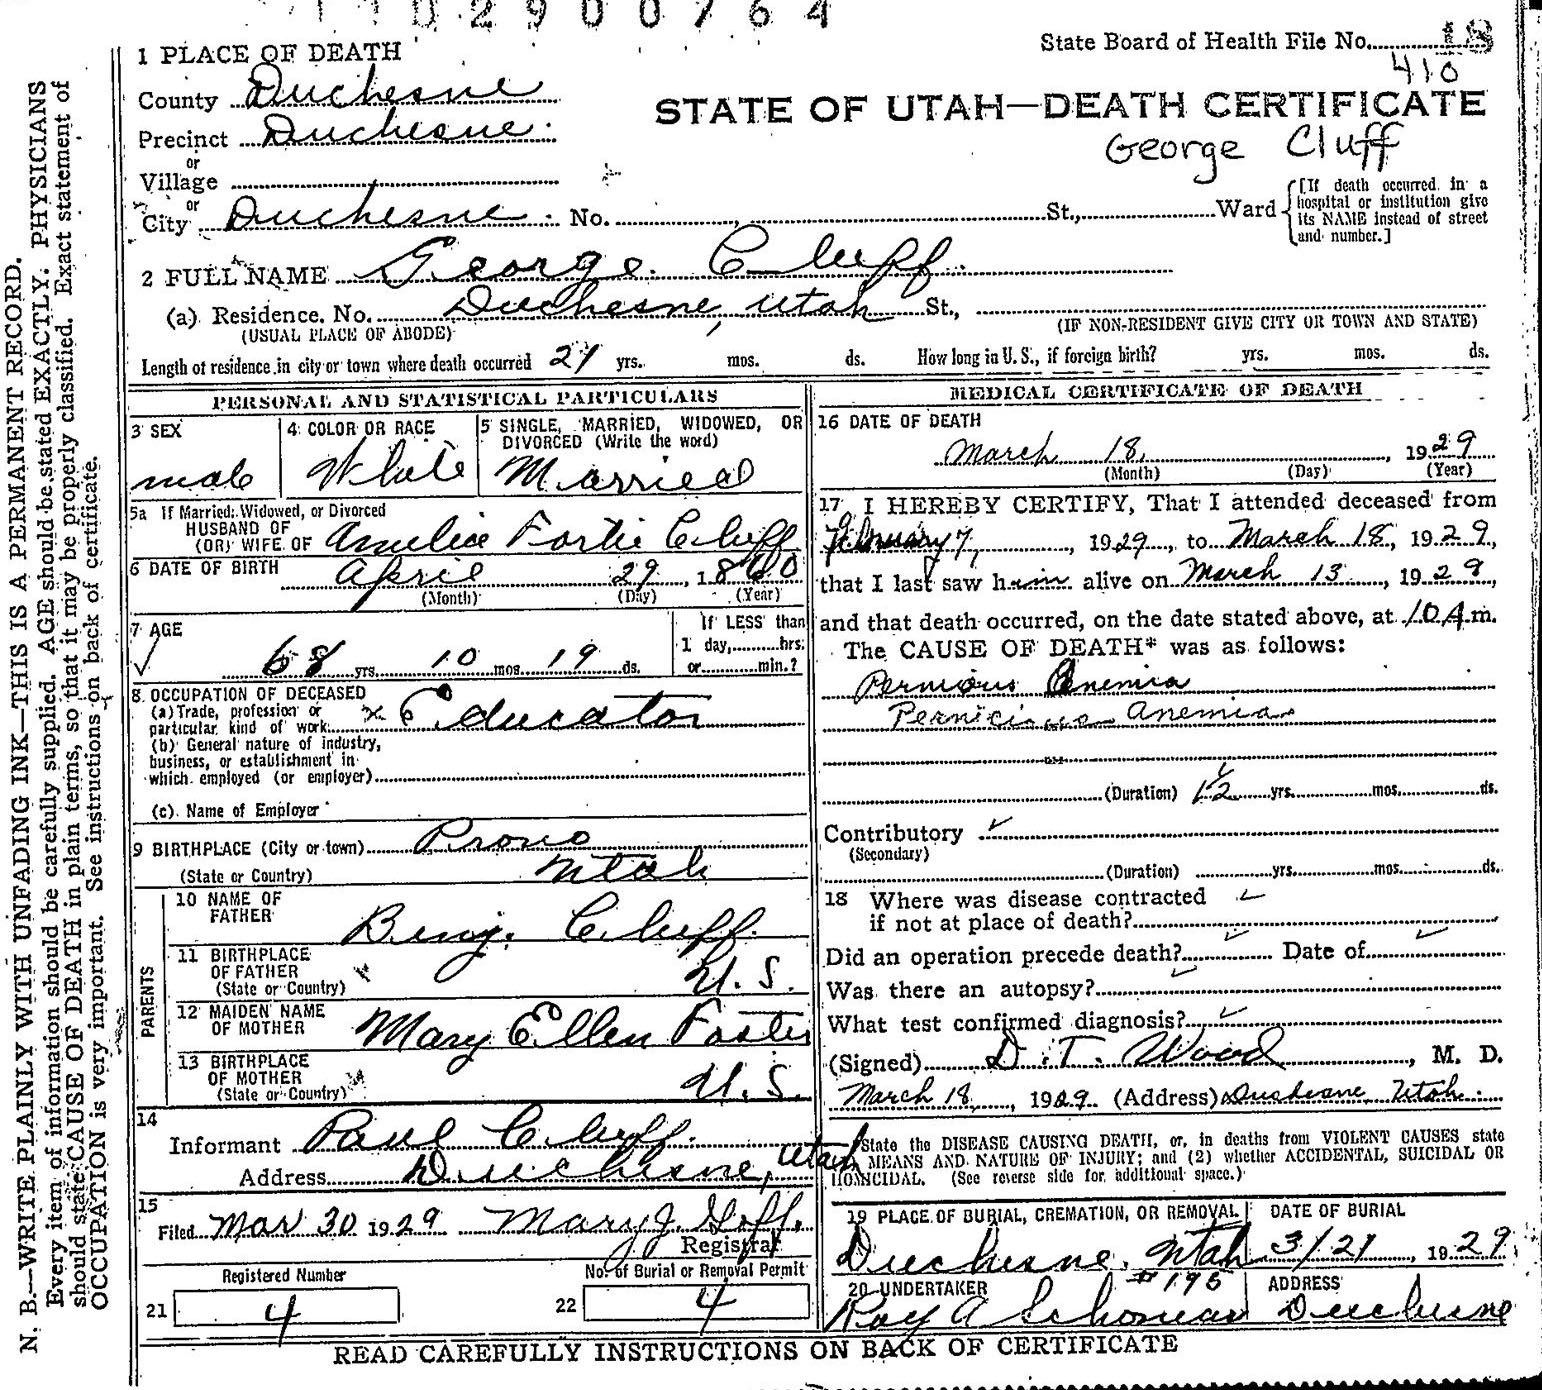 1102900764
State Board of Health File No. 18
410
1 PLACE OF DEATH
County Duchesne
STATE OF UTAH—DEATH CERTIFICATE
Precinct Duchesne.
George Cluff
or
Village
or
City Duchesne. No. , St., Ward
[If death occurred in a
hospital or institution give
its NAME instead of street
and number.]
2 FULL NAME George Cluff.
(a) Residence. No. Duchesne, Utah St.,
(USUAL PLACE OF ABODE) (IF NON-RESIDENT GIVE CITY OR TOWN AND STATE)
Length of residence in city or town where death occurred 21 yrs. mos. ds. How long in U. S., if foreign birth? yrs. mos. ds.
PERSONAL AND STATISTICAL PARTICULARS
3 SEX
male
4 COLOR OR RACE
White
5 SINGLE, MARRIED, WIDOWED, OR
DIVORCED (Write the word)
Married
5a If Married, Widowed, or Divorced
HUSBAND OF
(OR) WIFE OF Cluff
6 DATE OF BIRTH
April 29, 1860
(Month) (Day) (Year)
7 AGE
68 yrs. 10 mos. 19 ds.
If LESS than
1 day, hrs.
or min.?
8. OCCUPATION OF DECEASED
(a) Trade, profession or
particular kind of work Educator
(b) General nature of industry,
business, or establishment in
which employed (or employer)
(c) Name of Employer
9 BIRTHPLACE (City or town) Provo
(State or Country) Utah
PARENTS
10 NAME OF
FATHER Benj. Cluff.
11 BIRTHPLACE
OF FATHER
(State or Country) U. S.
12 MAIDEN NAME
OF MOTHER Mary Ellen Foster
13 BIRTHPLACE
OF MOTHER
(State or Country) U. S.
14
Informant Paul Cluff.
Address Duchesne, Utah
15
Filed Mar 30 1929 Mary J. Goff.
Registrar
Registered Number
21 4
No. of Burial or Removal Permit
22 4
MEDICAL CERTIFICATE OF DEATH
16 DATE OF DEATH
March 18, 1929
(Month) (Day) (Year)
17 I HEREBY CERTIFY, That I attended deceased from
February 7, 1929, to March 18, 1929,
that I last saw him alive on March 13, 1929,
and that death occurred, on the date stated above, at 10 A m.
The CAUSE OF DEATH* was as follows:
Pernious Anemia
Pernicious anemia
(Duration) 1½ yrs. mos. ds.
Contributory
(Secondary)
(Duration) yrs. mos. ds.
18 Where was disease contracted
if not at place of death?
Did an operation precede death? Date of
Was there an autopsy?
What test confirmed diagnosis?
(Signed) D. T. Wood, M. D.
March 18, 1929 (Address) Duchesne, Utah.
State the DISEASE CAUSING DEATH, or, in deaths from VIOLENT CAUSES state
MEANS AND NATURE OF INJURY; and (2) whether ACCIDENTAL, SUICIDAL OR
HOMICIDAL. (See reverse side for additional space.)
19 PLACE OF BURIAL, CREMATION, OR REMOVAL
Duchesne, Utah
DATE OF BURIAL
3/21, 1929
20 UNDERTAKER #195
Roy A Schonian
ADDRESS
Duchesne
READ CAREFULLY INSTRUCTIONS ON BACK OF CERTIFICATE
N. B.—WRITE PLAINLY WITH UNFADING INK—THIS IS A PERMANENT RECORD.
Every item of information should be carefully supplied. AGE should be stated EXACTLY. PHYSICIANS
should state CAUSE OF DEATH in plain terms, so that it may be properly classified. Exact statement of
OCCUPATION is very important. See instructions on back of certificate.